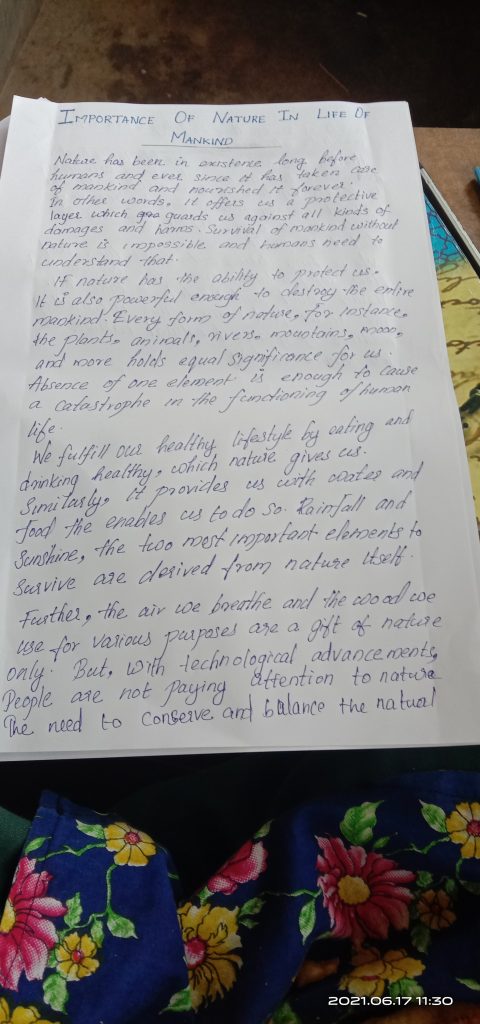 IMPORTANCE OF NATURE IN LIFE OF
MANKIND
Nature has been in existence long before
humans and ever since it has taken care
of mankind and nourished it forever.
In other words, it offers us a protective
layer which guards us against all kinds of
damages and harms. Survival of mankind without
nature is impossible and humans need to
understand that.
If nature has the ability to protect us.
It is also powerful enough to destroy the entire
mankind. Every form of nature, for instance,
the plants, animals, rivers, mountains, moon,
and more holds equal significance for us.
Absence of one element is enough to cause
a catastrophe in the functioning of human
life.
We fulfill our healthy lifestyle by eating and
drinking healthy, which nature gives us.
Similarly, it provides us with water and
food the enables us to do so. Rainfall and
sunshine, the two most important elements to
survive are derived from nature itself.
Further, the air we breathe and the wood we
use for various purposes are a gift of nature
only. But, with technological advancements,
People are not paying attention to nature
The need to conserve and balance the natural
2021.06.17 11:30